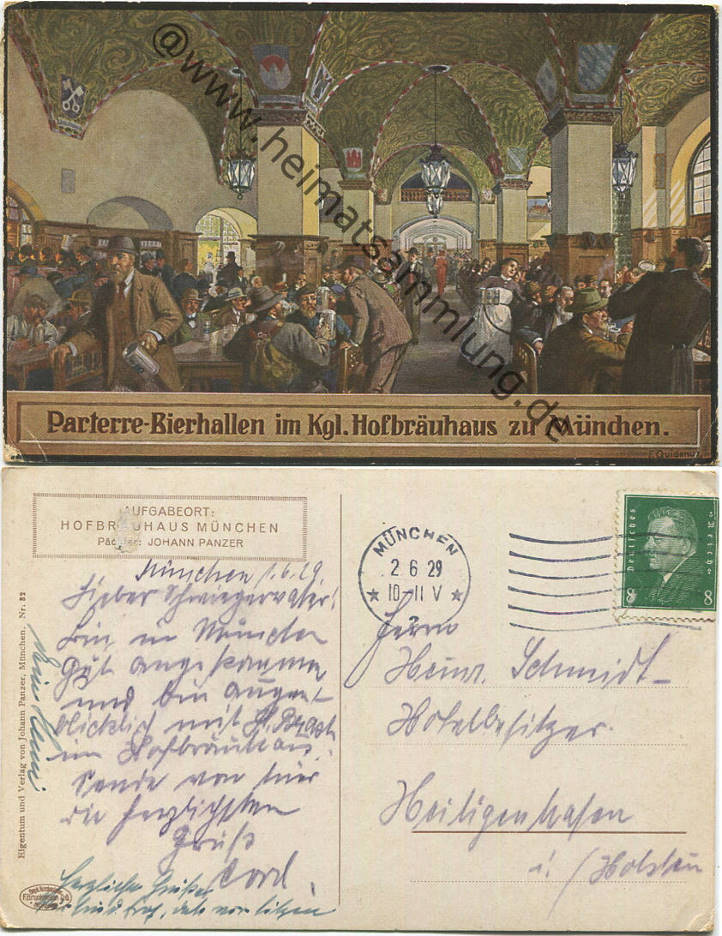 @www.heimatsammlung.de
Parterre-Bierhallen im Kgl. Hofbräuhaus zu München.
AUFGABEORT:
HOFBRÄUHAUS MÜNCHEN
Pächter: JOHANN PANZER
MÜNCHEN
2 6 29
10-11 V
Deutsches Reich
8 8
München 1.6.29.
Lieber Schwiegervater!
Bin in München
gut angekommen
und bin augen-
blicklich mit H.
im Hofbräuhaus.
Sende von hier
die herzlichsten
Grüße
Cord.
Herzliche Grüße
Herrn
Heinr. Schmidt
Hotelbesitzer.
Heiligenhafen
i/ Holstein
Eigentum und Verlag von Johann Panzer, München. Nr. 32